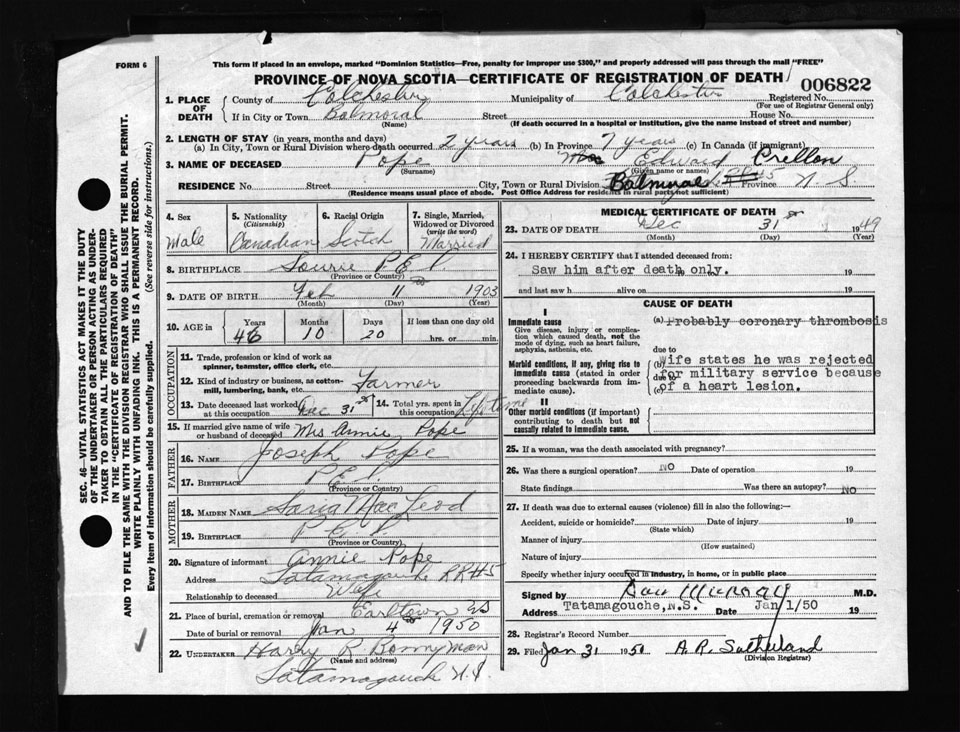 FORM 6
This form if placed in an envelope, marked "Dominion Statistics—Free, penalty for improper use $300," and properly addressed will pass through the mail "FREE"
PROVINCE OF NOVA SCOTIA—CERTIFICATE OF REGISTRATION OF DEATH
006822
1. PLACE OF DEATH
County of Colchester Municipality of Colchester Registered No.
(For use of Registrar General only)
If in City or Town Balmoral Street House No.
(Name) (If death occurred in a hospital or institution, give the name instead of street and number)
2. LENGTH OF STAY (in years, months and days)
(a) In City, Town or Rural Division where death occurred 2 years (b) In Province 7 years (c) In Canada (if immigrant)
3. NAME OF DECEASED Pope Edward
(Surname) (Given name or names)
RESIDENCE No. Street City, Town or Rural Division Province N. S
(Residence means usual place of abode. Post Office Address for residents in rural parts not sufficient)
4. Sex
Male
5. Nationality (Citizenship)
Canadian
6. Racial Origin
Scotch
7. Single, Married, Widowed or Divorced (write the word)
Married
8. BIRTHPLACE Sourie P.E.I.
(Province or Country)
9. DATE OF BIRTH Feb 11 1903
(Month) (Day) (Year)
10. AGE in Years Months Days If less than one day old
46 10 20 hrs. or min.
OCCUPATION
11. Trade, profession or kind of work as spinner, teamster, office clerk, etc.
12. Kind of industry or business, as cotton-mill, lumbering, bank, etc. Farmer
13. Date deceased last worked at this occupation Dec 31
14. Total yrs. spent in this occupation Lifetime
15. If married give name of wife or husband of deceased Mrs Annie Pope
FATHER
16. NAME Joseph Pope
17. BIRTHPLACE P.E.I.
(Province or Country)
MOTHER
18. MAIDEN NAME MacLeod
19. BIRTHPLACE P.E.I.
(Province or Country)
20. Signature of informant Annie Pope
Address Tatamagouche RR#5
Relationship to deceased Wife
21. Place of burial, cremation or removal Earltown
Date of burial or removal Jan 4 1950
22. UNDERTAKER Harry R. Bonnyman
(Name and address)
Tatamagouche N.S.
MEDICAL CERTIFICATE OF DEATH
23. DATE OF DEATH Dec 31 1949
(Month) (Day) (Year)
24. I HEREBY CERTIFY that I attended deceased from:
Saw him after death only. 19
and last saw h alive on 19
CAUSE OF DEATH
I
Immediate cause
Give disease, injury or complication which caused death, not the mode of dying, such as heart failure, asphyxia, asthenia, etc.
(a) Probably coronary thrombosis
due to
Morbid conditions, if any, giving rise to immediate cause (stated in order proceeding backwards from immediate cause).
(b) Wife states he was rejected
due to for military service because
(c) of a heart lesion.
II
Other morbid conditions (if important) contributing to death but not causally related to immediate cause.
25. If a woman, was the death associated with pregnancy?
26. Was there a surgical operation? NO Date of operation 19
State findings Was there an autopsy? NO
27. If death was due to external causes (violence) fill in also the following:—
Accident, suicide or homicide? Date of injury 19
(State which)
Manner of injury
(How sustained)
Nature of injury
Specify whether injury occurred in industry, in home, or in public place
Signed by Dan Murray M.D.
Address Tatamagouche, N.S. Date Jan 1/50 19
28. Registrar's Record Number
29. Filed Jan 31 1950 A. R. Sutherland
(Division Registrar)
SEC. 46—VITAL STATISTICS ACT MAKES IT THE DUTY
OF THE UNDERTAKER OR PERSON ACTING AS UNDER-
TAKER TO OBTAIN ALL THE PARTICULARS REQUIRED
IN THE "CERTIFICATE OF REGISTRATION OF DEATH"
AND TO FILE THE SAME WITH THE DIVISION REGISTRAR WHO SHALL ISSUE THE BURIAL PERMIT.
WRITE PLAINLY WITH UNFADING INK. THIS IS A PERMANENT RECORD.
Every item of information should be carefully supplied. (See reverse side for instructions.)